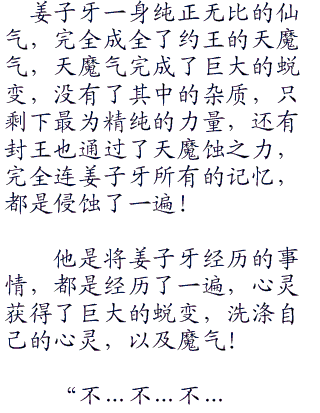 姜子牙一身纯正无比的仙
气，完全成全了约王的天魔
气，天魔气完成了巨大的蜕
变，没有了其中的杂质，只
剩下最为精纯的力量，还有
封王也通过了天魔蚀之力，
完全连姜子牙所有的记忆，
都是侵蚀了一遍！
他是将姜子牙经历的事
情，都是经历了一遍，心灵
获得了巨大的蜕变，洗涤自
己的心灵，以及魔气！
“不…不…不…